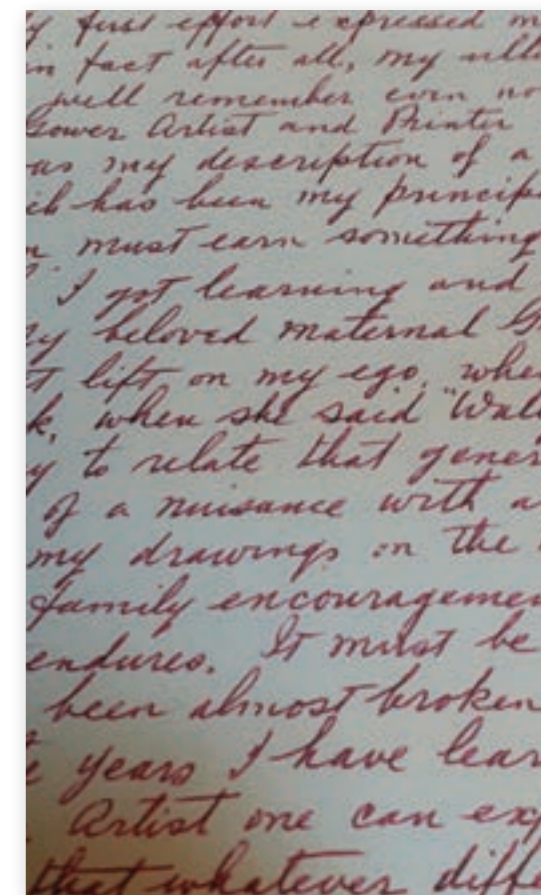 y first effort expressed m
in fact after all, my ult
well remember even no
Gower Artist and Printer
as my description of a
ich has been my princip
must earn something
I got learning and
My beloved maternal G
t lift on my ego, whe
k, when she said "Wal
y to relate that gener
of a nuisance with a
my drawings on the
family encouragemen
endures. It must be
been almost broken
years I have lear
Artist one can exp
that whatever diff